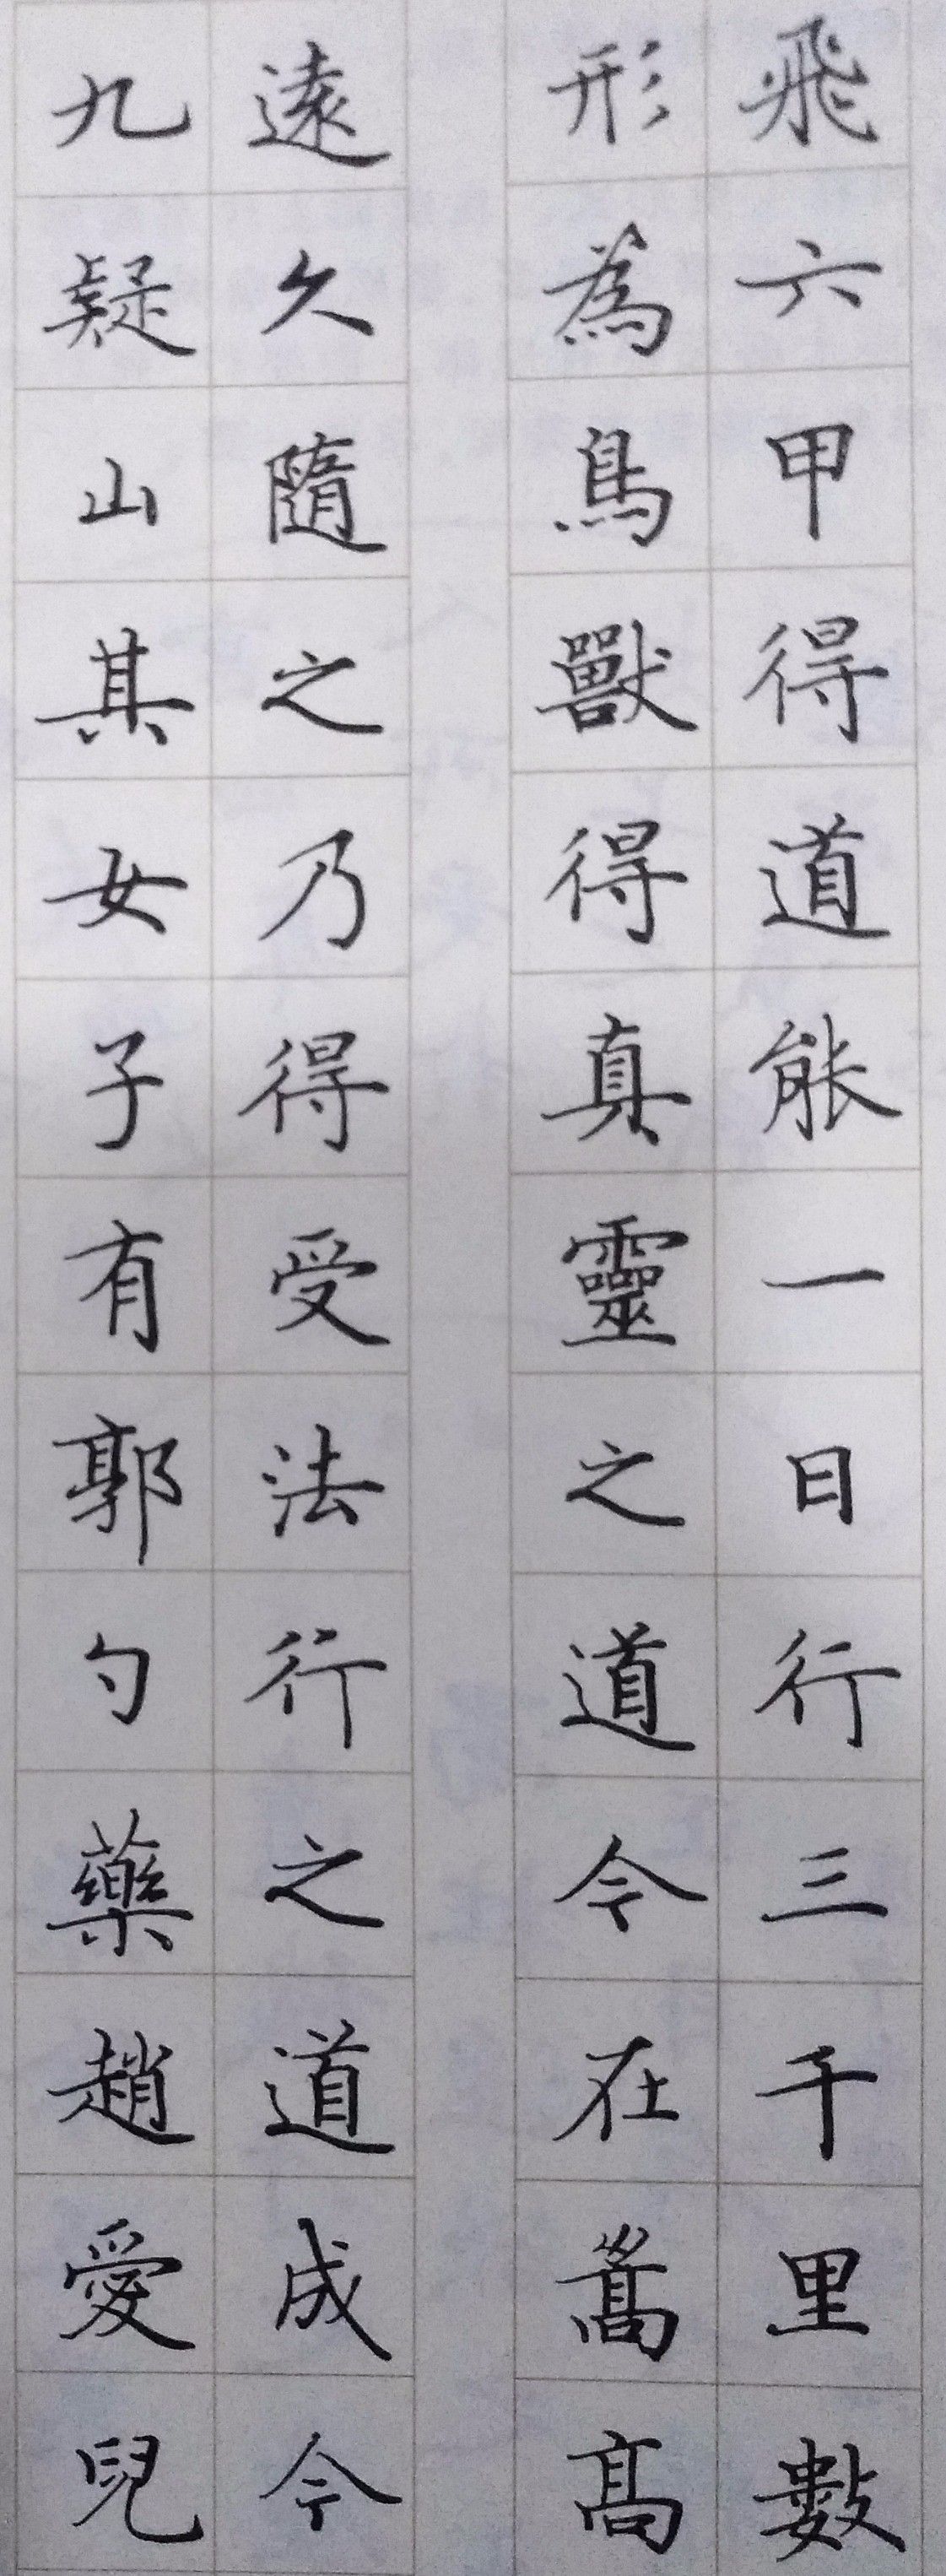 飛六甲得道能一日行三千里數
形為鳥獸得真靈之道今在嵩高
遠久隨之乃得受法行之道成今
九疑山其女子有郭勺藥趙愛兒